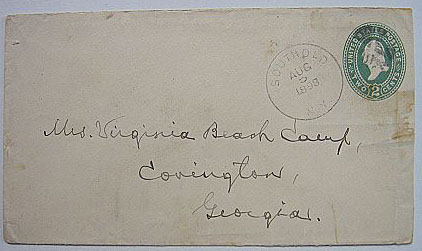 SOUTHOLD
AUG
5
1893
N.Y.
UNITED STATES POSTAGE
2
TWO CENTS
Mrs. Virginia Beach Camp,
Covington,
Georgia.